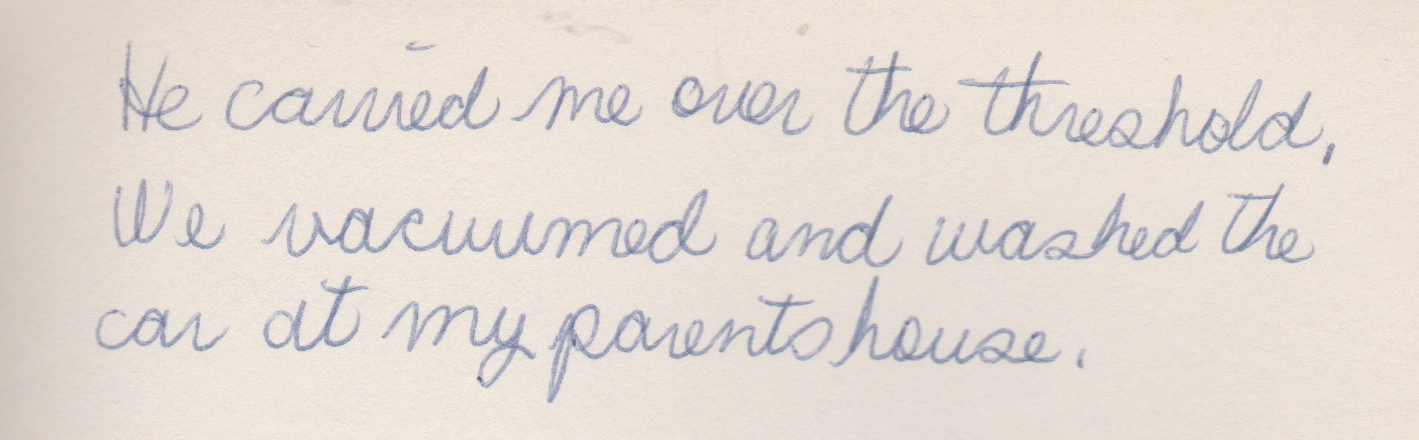 He carried me over the threshold,
We vacuumed and washed the
car at my parents house.